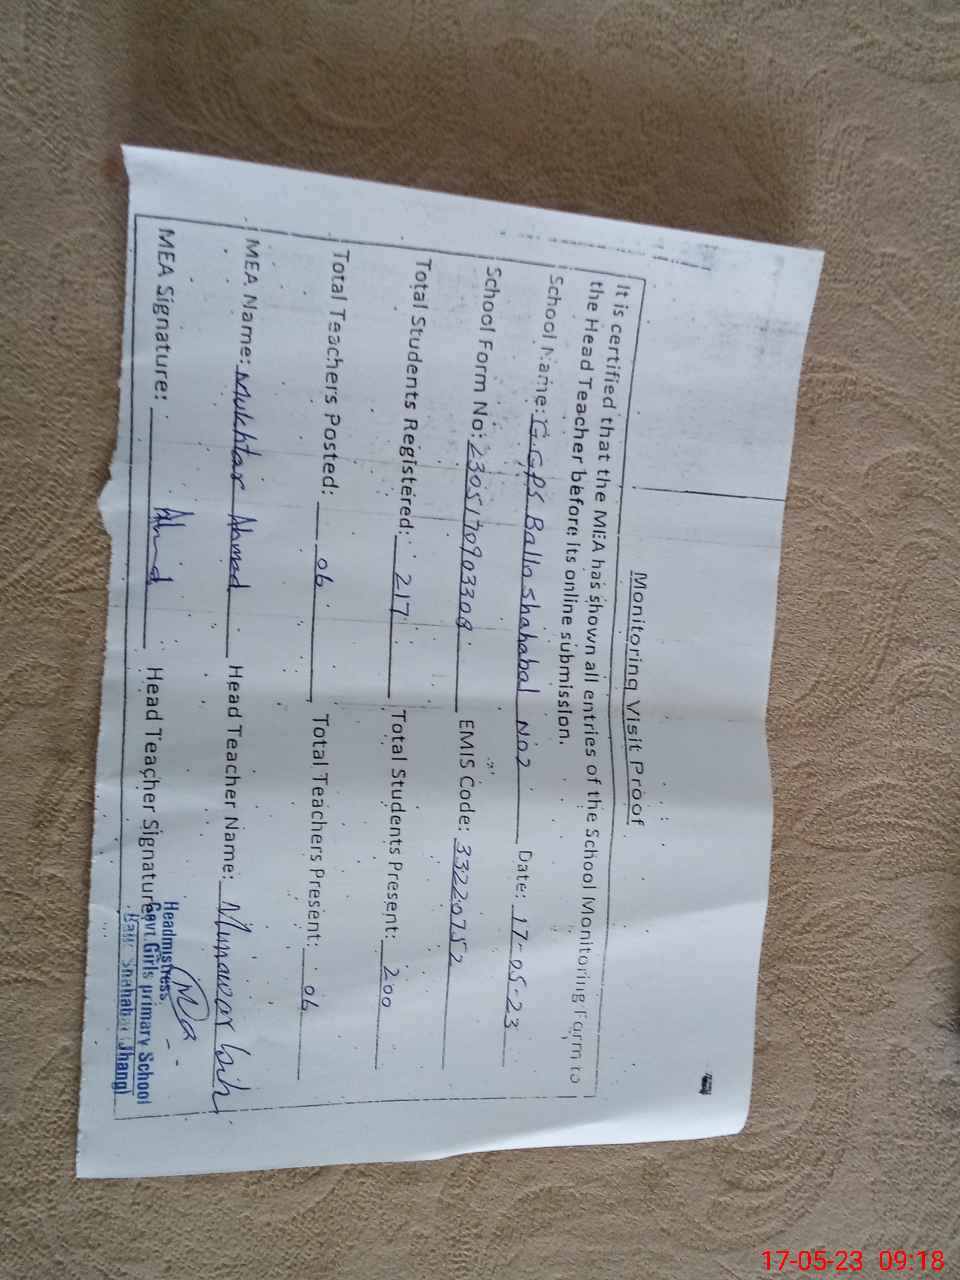 Monitoring Visit Proof
It is certified that the MEA has shown all entries of the School Monitoring Form to
the Head Teacher before its online submission.
School Name: GGPS Ballo Shahabal No2 Date: 17-05-23
School Form No: 230517090330 EMIS Code: 33220752
Total Students Registered: 217 Total Students Present: 200
Total Teachers Posted: 06 Total Teachers Present: 06
MEA Name: Mukhtar Ahmed Head Teacher Name: Munawar
MEA Signature: Head Teacher Signature
Headmistress
Govt. Girls primary School
Shahabal Jhang
17-05-23 09:18